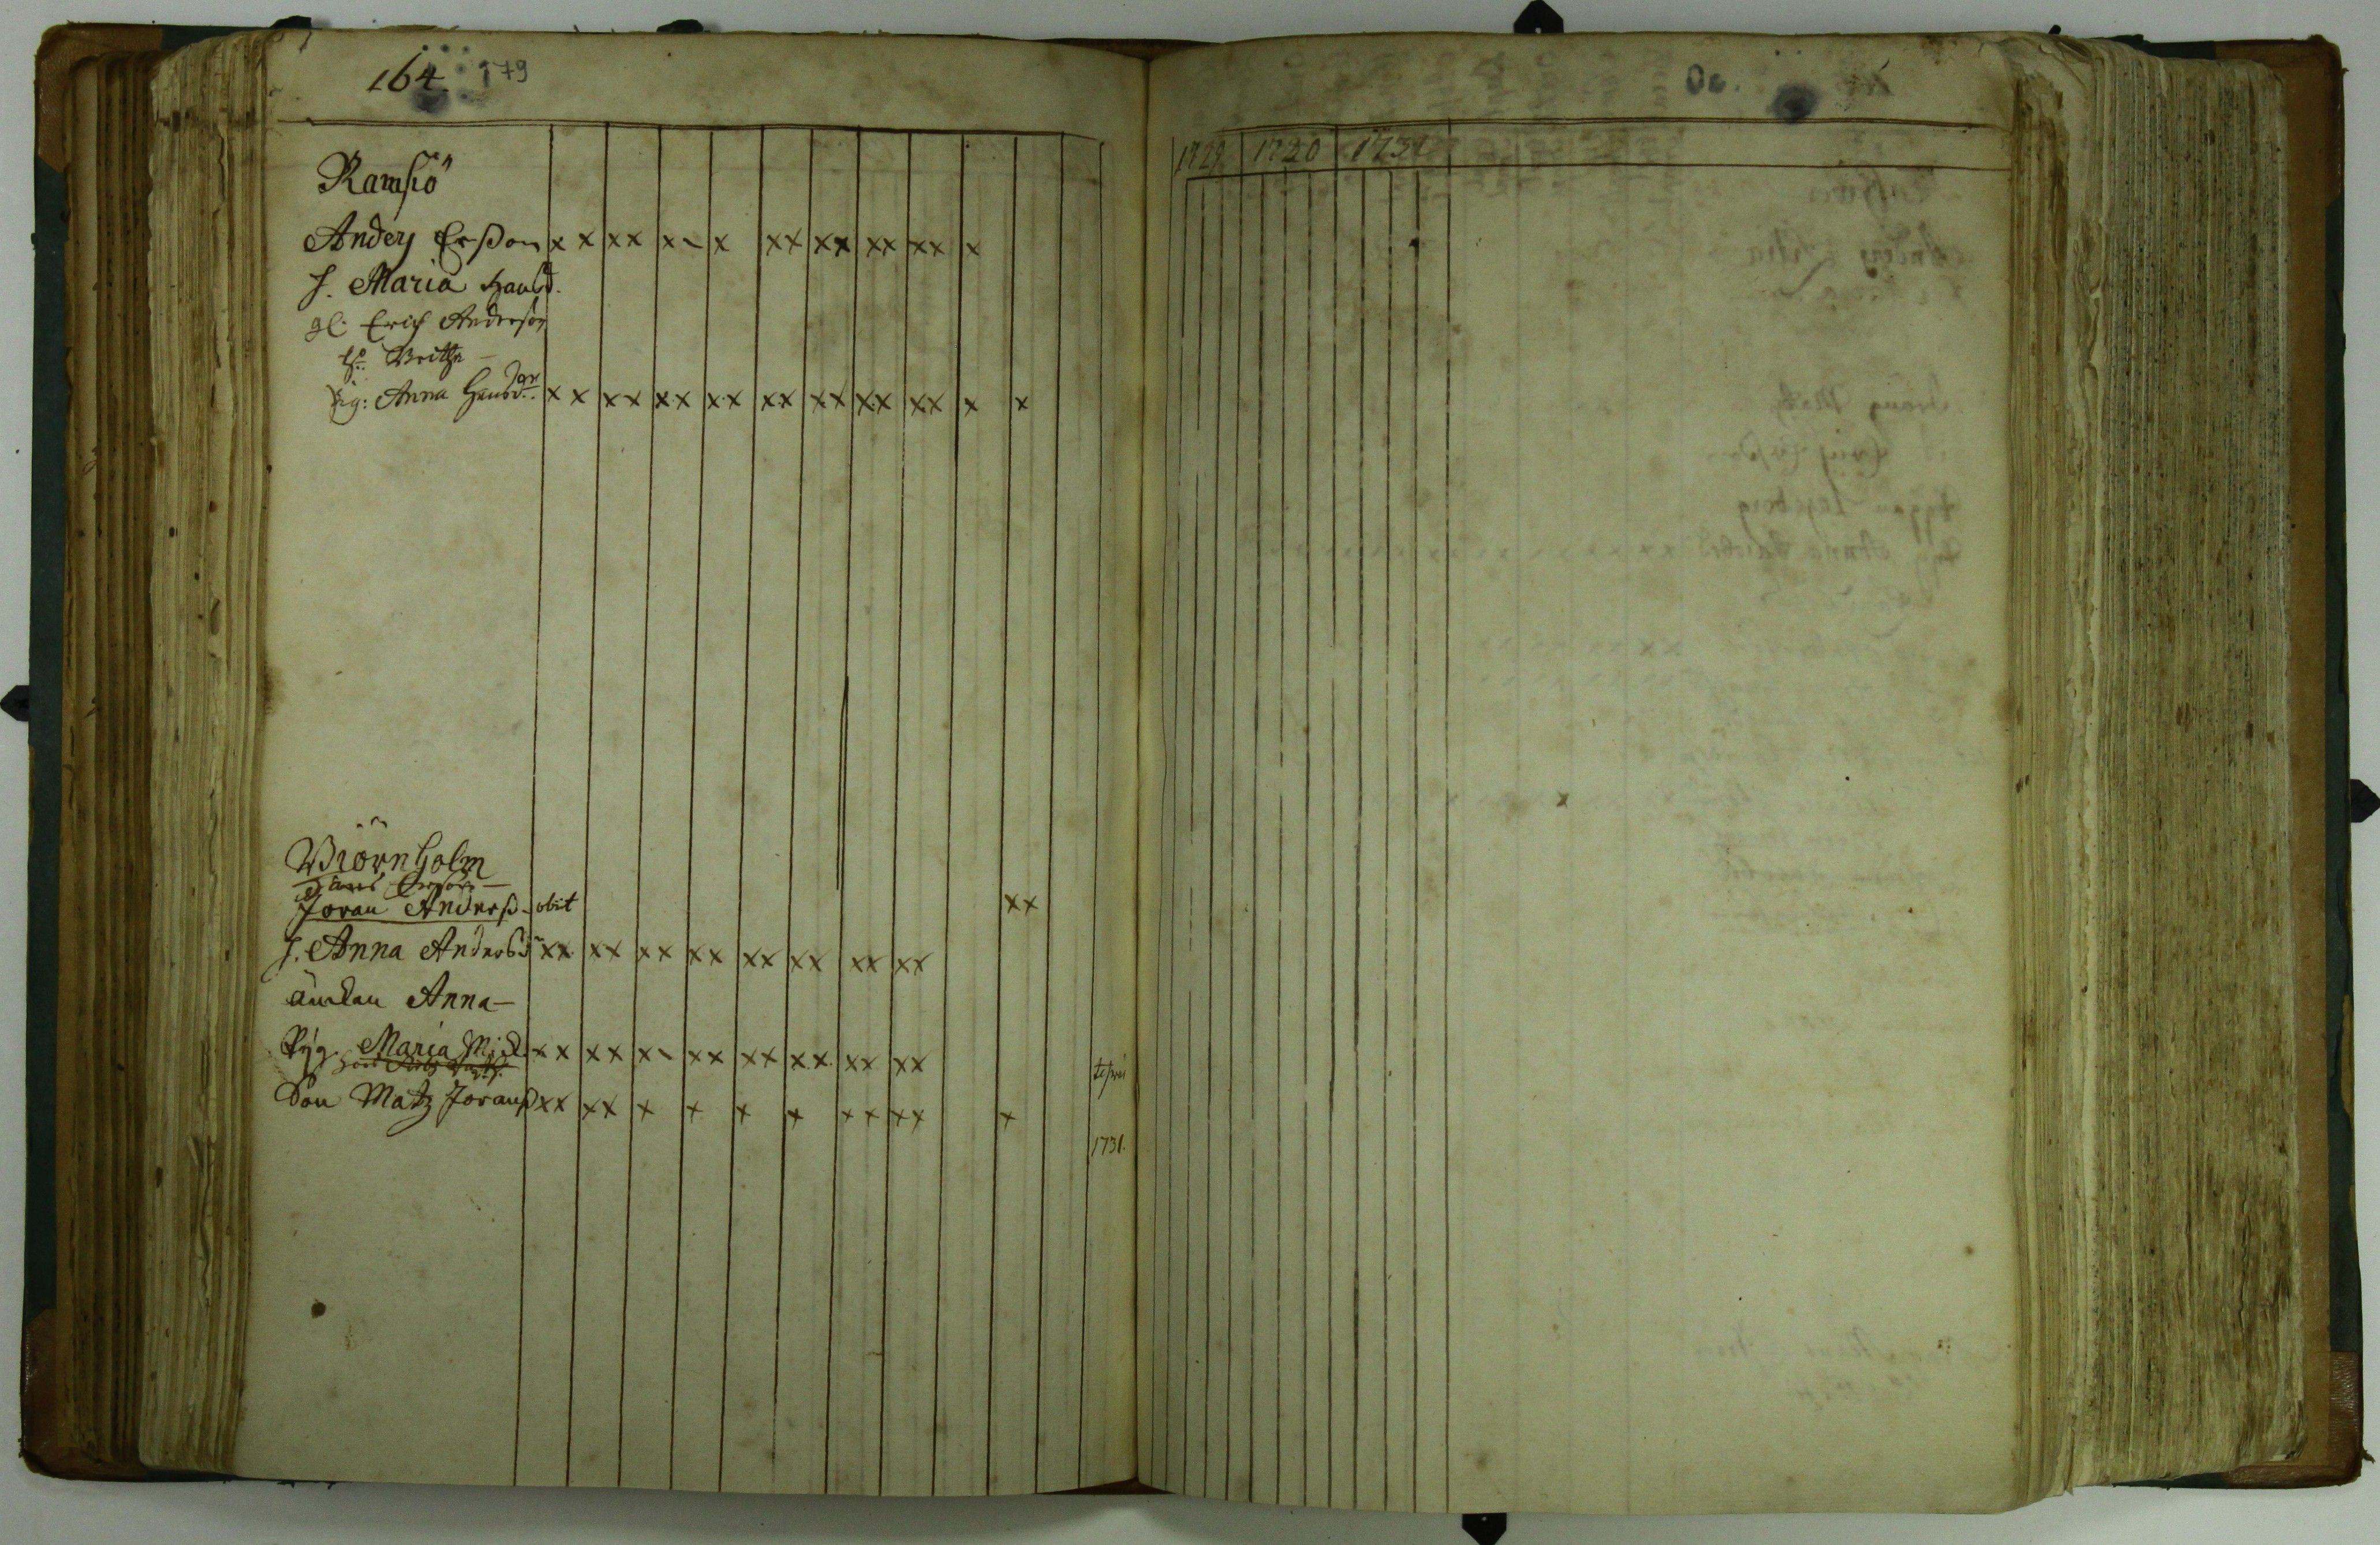 164. 179
Ramsiö
Anders Erßon x x x x x - x x x x x x x x x x
h. Maria Hansd.
gl. Erich Andersson
h. Britha —
Pig: Anna Hansd. x x x x x x x x x x x x x x x x x x
Biörnholm
Hans Ersson —
Joran Anderß - obit x x
h. Anna Andersd x x x x x x x x x x x x x x x x
änckan Anna —
Pig Maria M:d. x x x x x - x x x x x x x x x x
Son Matz Joranß x x x x x x x x x x x x x
1731.
1729 1730 1731